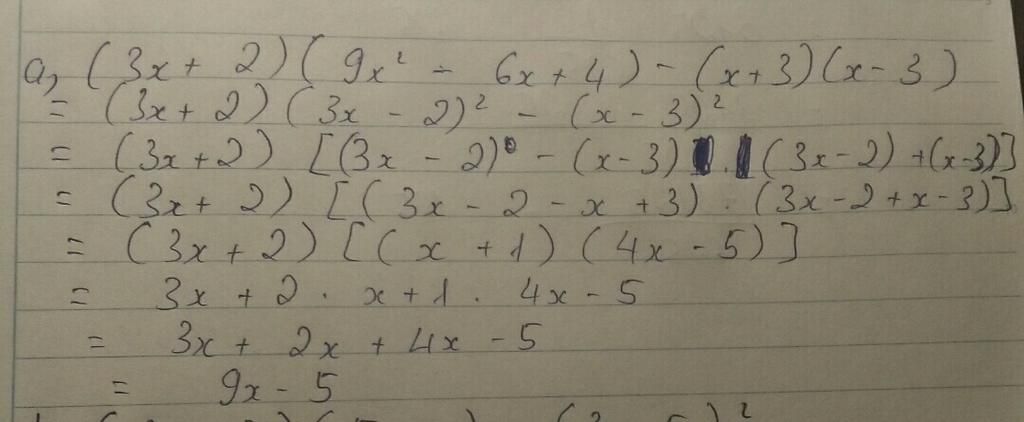 a, (3x + 2)(9x² - 6x + 4) - (x+3)(x-3)
= (3x + 2)(3x - 2)² - (x - 3)²
= (3x+2) [(3x - 2) - (x-3) . (3x-2) +(x-3)]
= (3x + 2) [(3x - 2 - x + 3) . (3x-2+x-3)]
= (3x + 2) [(x + 1) (4x - 5)]
= 3x + 2 . x+1 . 4x - 5
= 3x + 2x + 4x - 5
= 9x - 5